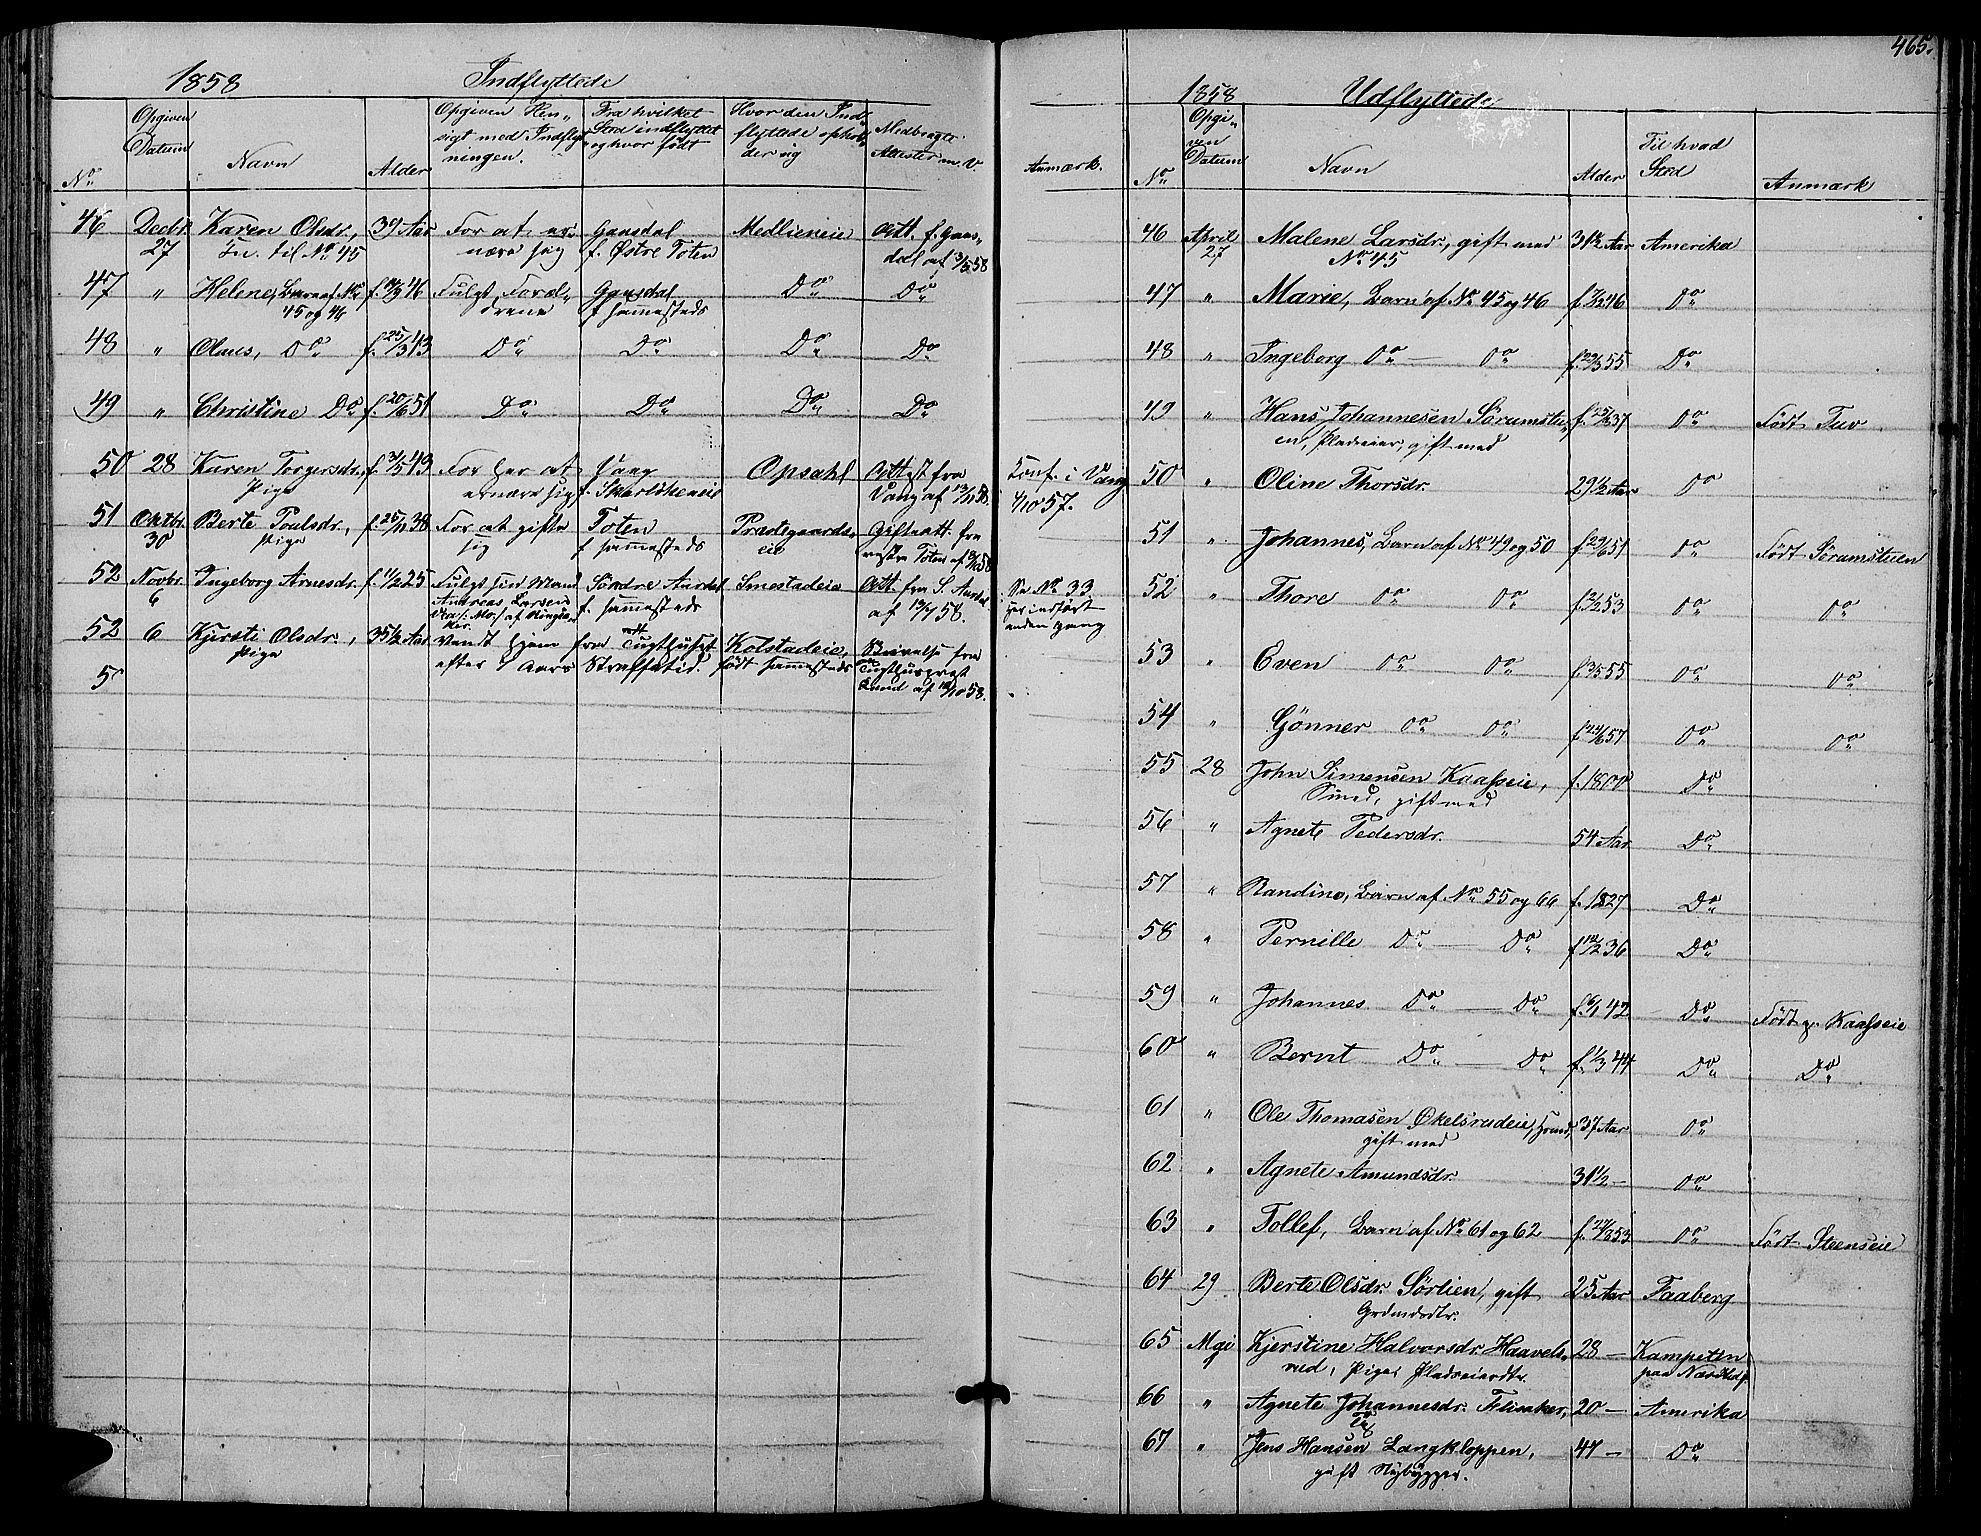 1858 Indflyttede
No. Opgiven Datum Navn Alder Opgiven Hensigt med Indflytningen. Fra hvilket Sted indflyttet og hvor født Hvor den Indflyttede opholder sig Medbragte Attester m. V. Anmærk.
46 Decbr. 27 Karen Olsdr., Kn. til No. 45 39 Aar For at ernære sig Gausdal f. Østre Toten Medlieneie Att. f. Gausdal af 3/5 58
47 " Helene, Barn af No. 45 og 46 46 Fulgt Forældrene Gausdal f. sammesteds Do. Do.
48 " Olaus, Do. f. 25/3 43 Do. Do. Do. Do.
49 " Christine Do. f. 20/6 51 Do. Do. Do. Do.
50 28 Karen Torgersdr., Pige f. 3/5 43 For her at ernære sig Vang Opsahl Attest fra Vang af 13/11 58. Conf. i Vang 4/10 57.
51 Oktbr. 30 Berte Poulsdr., Pige f. 25/11 38 For at gifte sig Toten f. sammesteds Præstegaardseie Gifteatt. fra vestre Toten af 58
52 Novbr. 6 Ingeborg Arnesdr. f. 1/2 25 Fulgt sin Mand Andreas Larsen Søndre Aurdal f. sammesteds Smestadeie Att. fra S. Aurdal af 13/4 58. Se No. 33 her indført anden gang
52 6 Kjersti Olsdr., Pige 35 1/2 Aar Vendt hjem fra Tugthuset efter 1 Aars Straffetid. Kolstadeie, født sammesteds Bevivelse fra Tugthuspræst Lund af 19/10 58.
5
465.
1858 Udflyttede
No. Opgiven Datum Navn Alder Til hvad Sted Anmærk
46 April 27 Malene Larsdr., gift med No. 45 31 1/2 Aar Amerika
47 " Marie, Barn af No. 45 og 46 f. 7/2 46 Do.
48 " Ingeborg Do. — Do. f. 22/3 55 Do.
49 " Hans Johannesen Sørumstuen, Pladseier, gift med f. 25/5 37 Do. Født Tuv
50 " Oline Thorsdr. 29 1/2 Aar Do.
51 " Johannes, Barn af No. 49 og 50 f. 29/6 51 Do. Født Sørumstuen
52 " Thore Do. Do. f. 2/2 53 Do. Do.
53 " Even Do. Do. f. 3/5 55 Do. Do.
54 " Gönner Do. Do. f. 24/6 57 Do. Do.
55 28 John Simensen Kaasseie, Smed, gift med f. 1800 Do.
56 " Agnete Pedersdr. 54 Aar Do.
57 " Randine, Barn af No. 55 og 66 f. 1827 Do.
58 " Pernille Do. — Do. f. 12/2 36 Do.
59 " Johannes Do. — Do. f. 6/1 42 Do. Født p. Kaasseie
60 " Bernt Do. — Do. f. 1/3 44 Do. Do.
61 " Ole Thomasen Økelsrudeie, Huusmd, gift med 37 Aar Do.
62 " Agnete Amundsdr. 31 1/2 — Do.
63 " Tollef, Barn af No. 61 og 62 f. 27/8 53 Do. Født Steenseie
64 29 Berte Olsdr. Sørlien, gift Grdmdsdtr. 25 Aar Faaberg
65 Mai 1 Kjerstine Halvorsdr. Haavelsrud, Pige, Pladseierdtr. 28 — Kampeten paa Næs Hedf.
66 " Agnete Johannesdr. Flisaker, Do. 20 — Amerika
67 " Jens Hansen Langkloppen, gift Nybygger. 47 — Do.